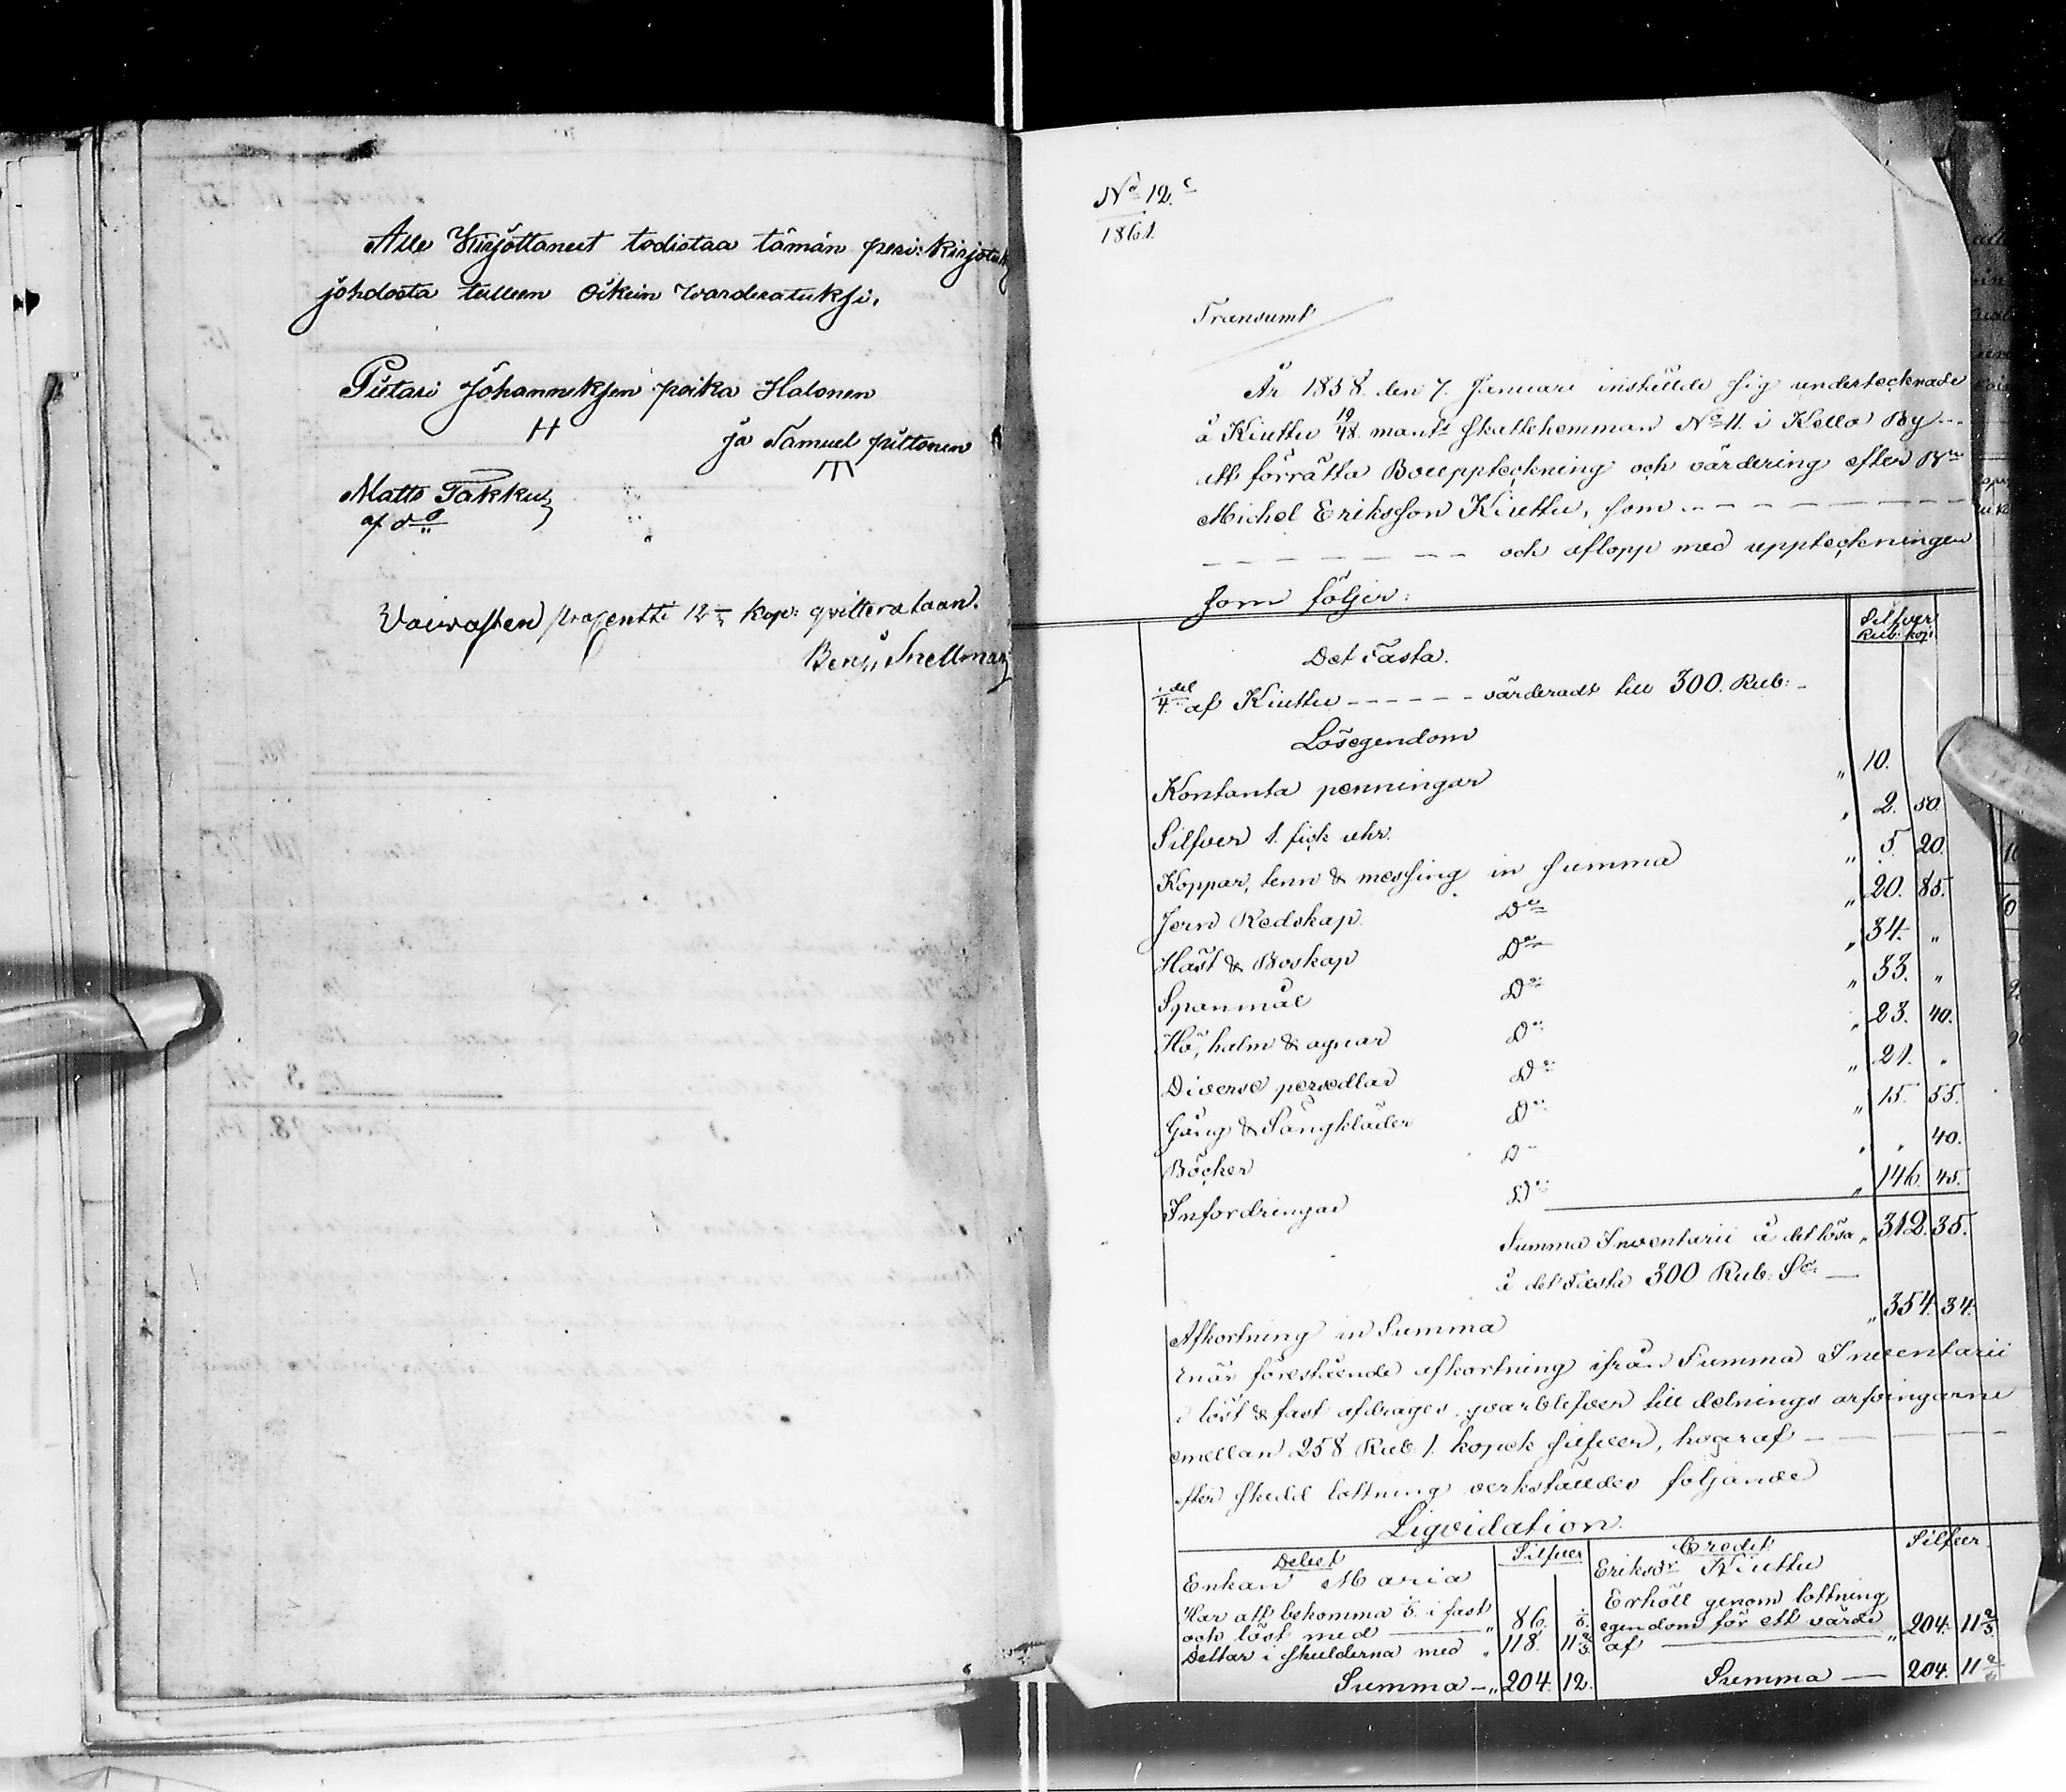 Alle Kirjottaneet todistaa tämän peri: kirjotuk
johdosta tulleen Oikein Warderatuksi.
Pietari Johanneksen poika Halonen
H
ja Samuel puttonen
Matts Takku
af do
Vaivasten prosentti 12 kop: qvitterataan.
Benj. Snellman
No 12. c
1861.
Transumt
År 1858 den 7. Januari instälde sig undertecknade
å Kiuttu 19/48 mantl skattehemman No 11. i Kello By
att förrätta Bouppteckning och värdering efter Bn
Michel Eriksson Kiuttu, som - - - - -
- - - - - och aflopp med uppteckningen
som följer:
Silfver
Rub. kop.
Det Fasta.
1/4 del af Kiuttu - - - - - värderadt till 300. Rub:
Lösegendom
Kontanta penningar " 10.
Silfver 1. fick uhr. " 2. 50.
Koppar, tenn & messing in summa " 5. 20.
Jern Redskap Do " 20. 85.
Häst & Boskap Do " 34. "
Spanmål Do " 33. "
Hö, halm & agnar Do " 23. 40.
Diverse persedlar Do " 21. "
Gång & Sängkläder Do " 15. 55.
Böcker Do " " 40.
Infordringar Do " 146. 45.
Summa Inventarii å det lösa " 312. 35.
å det Fasta 300 Rub: Sr
Afkortning in Summa " 354. 34.
Enär förestående afkortning ifrån Summa Inventarii
i löst & fast afdrages qvarblefver till delnings arfvingarne
emellan 258 Rub. 1. kopek silfver, hvaraf
efter skedd lottning verkställdes följande
Liqvidation.
Debet Silfver Credit Silfver
Enkan Maria Eriksdr Kiuttu
Har att bekomma 1/3. i fast
och löst med " 86. 1/3.
Deltar i skulderna med " 118. 11 2/3.
Erhöll genom lottning
egendom för ett värde
af " 204. 11 2/3.
Summa " 204. 12. Summa 204. 11 2/3